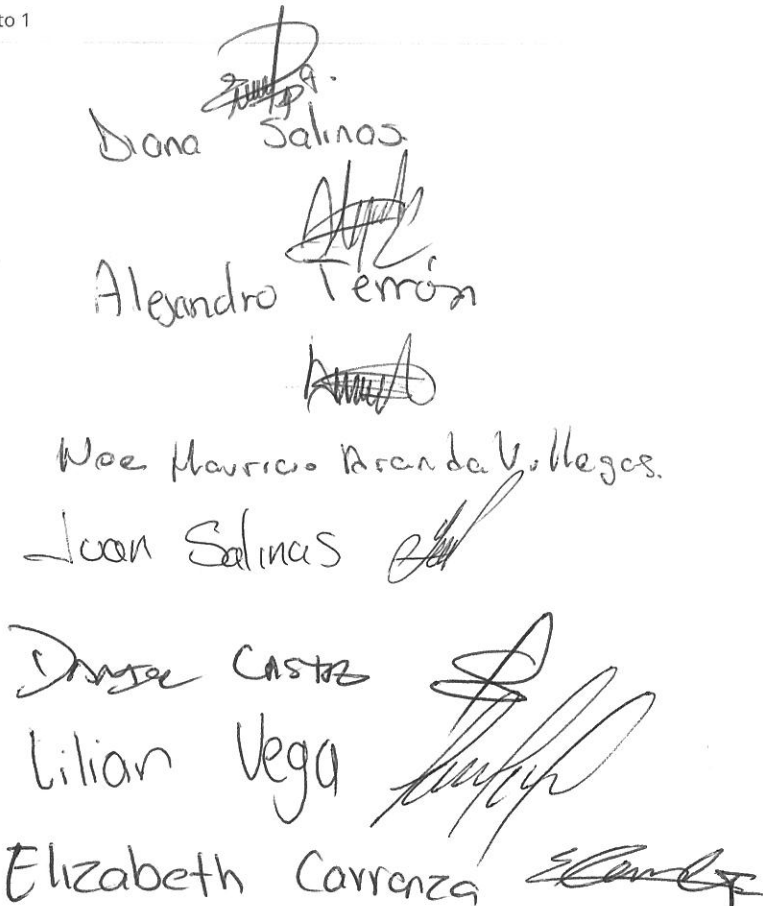 to 1
Diana Salinas.
Alejandro Terrón
Noe Mauricio Aranda Villegas.
Juan Salinas
Daniel Castro
Lilian Vega
Elizabeth Carranza